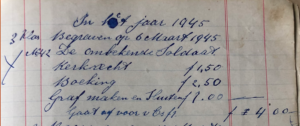 In 't jaar 1945
3 Begraven op 6 Maart 1945
No 42 De onbekende Soldaat
Kerkrecht f 1,50
Boeking f 2,50
Graf maken en sluiten f .00
Gaat af voor f 4.00